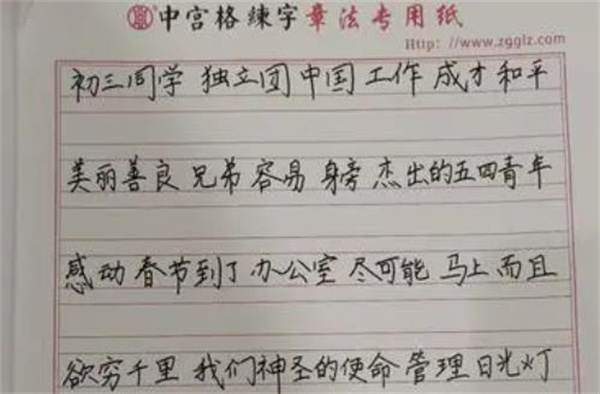 中宫格练字章法专用纸
Http: //www.zgglz.com
初三同学 独立团 中国 工作 成才 和平
美丽善良 兄弟 容易 身旁 杰出的五四青年
感动 春节到了 办公室 尽可能 马上 而且
欲穷千里 我们神圣的使命 管理 日光灯